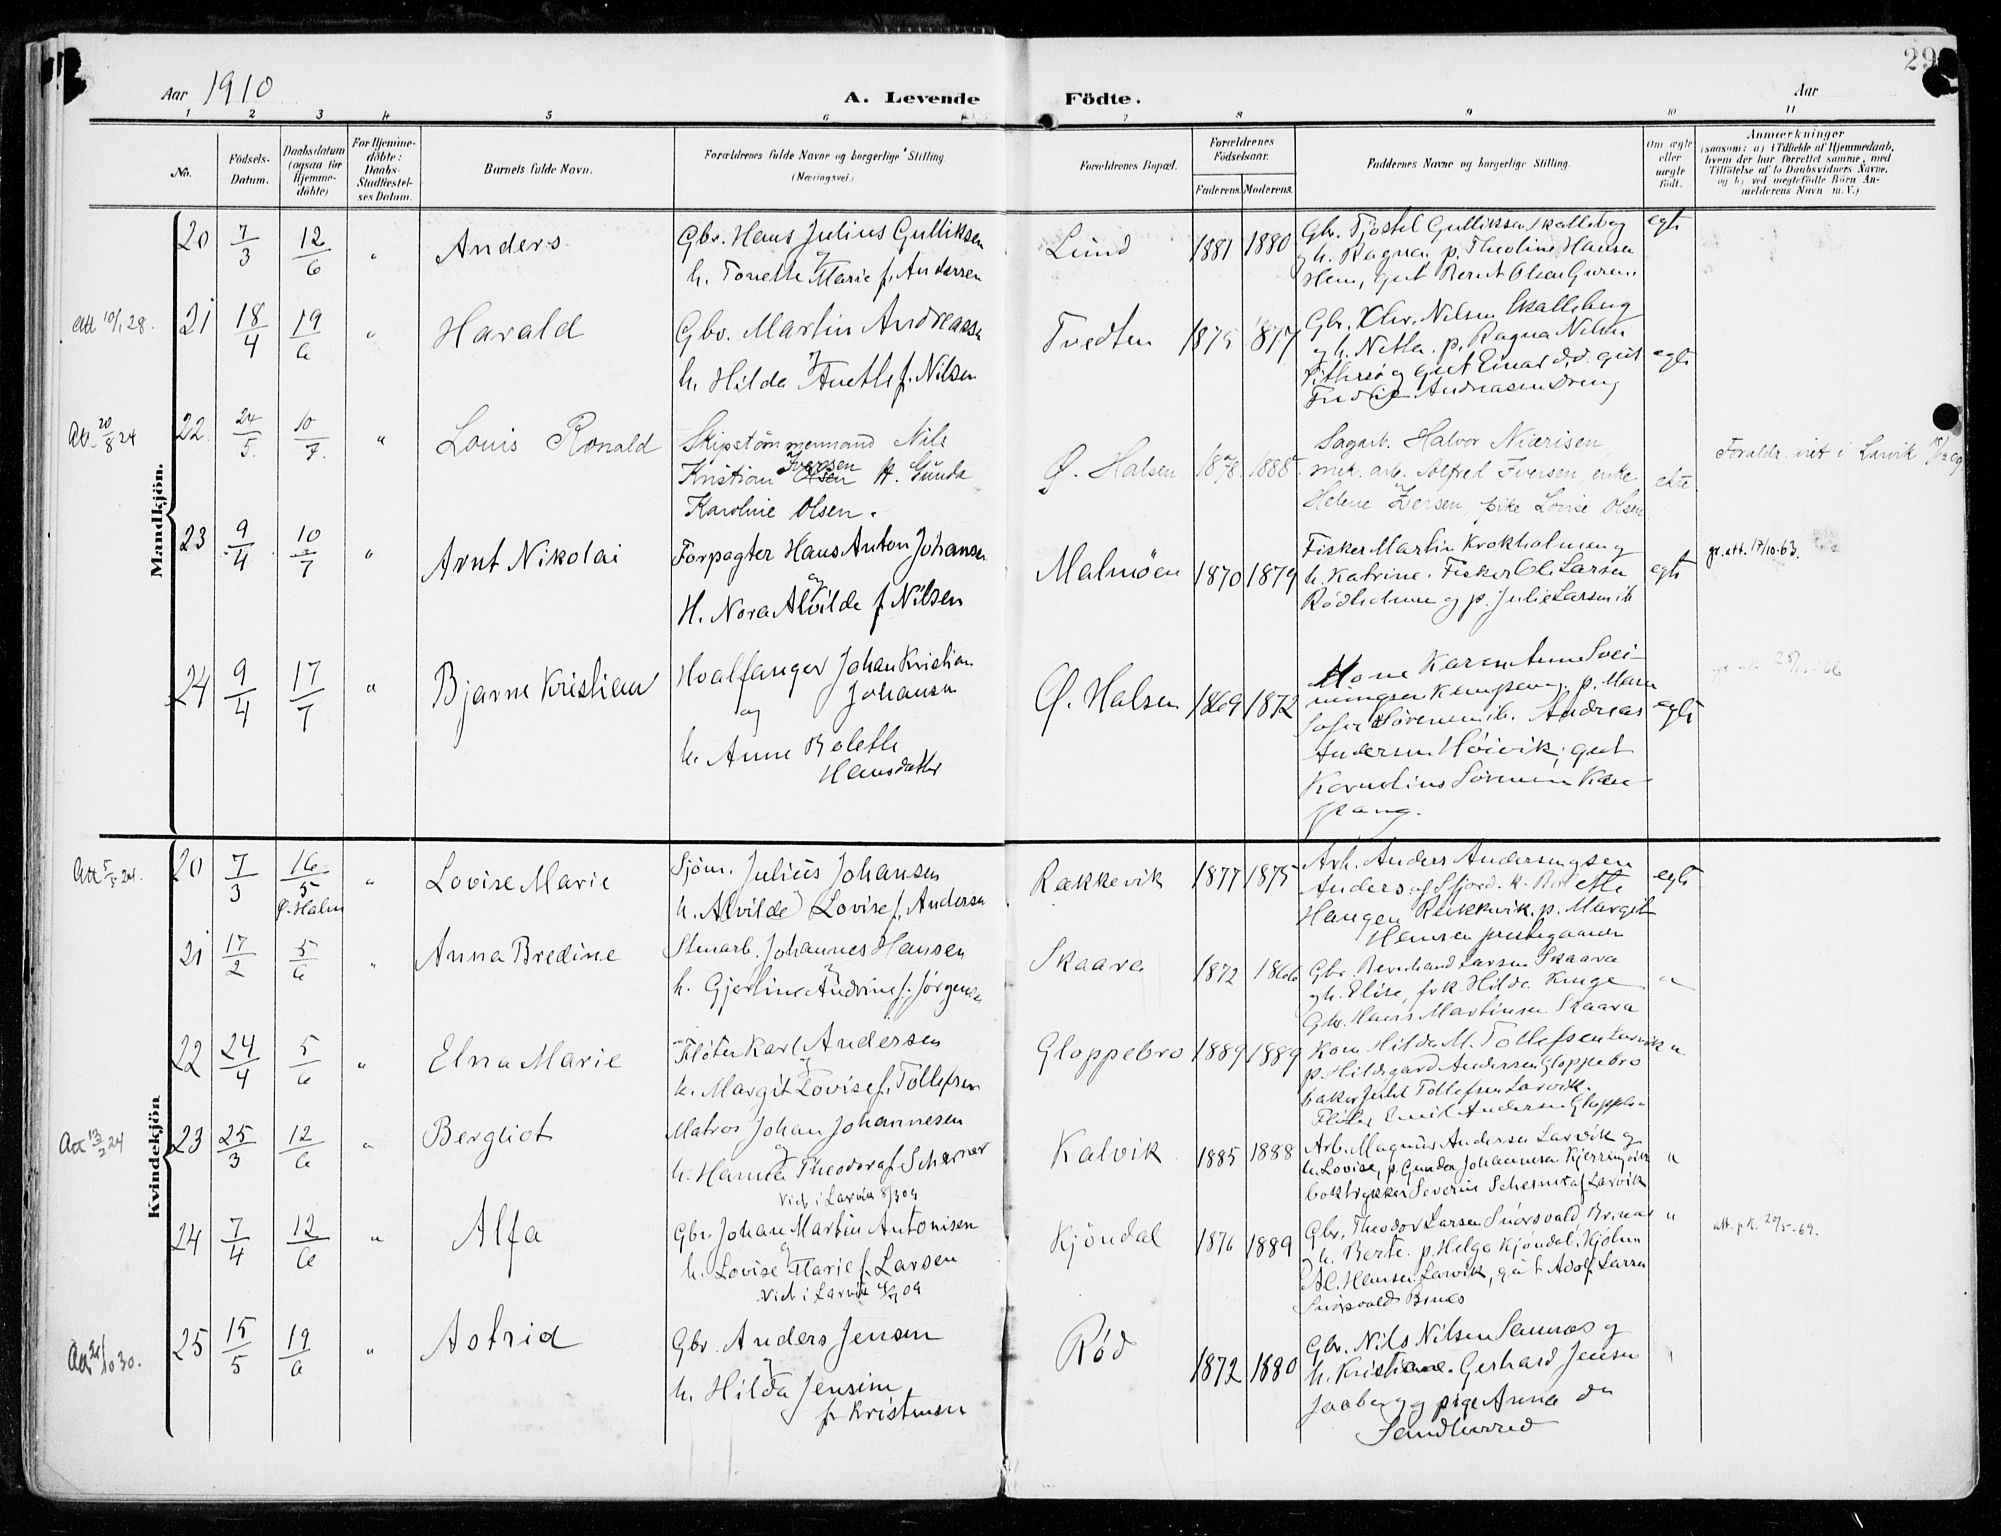 29
Aar 1910
A. Levende Födte.
Aar
1 2 3 4 5 6 7 8 9 10 11
No.
Födsels-Datum.
Daabsdatum (ogsaa for Hjemme-döbte)
For Hjemme-döbte: Daabs-Stadfæstel-ses Datum.
Barnets fulde Navn.
Forældrenes fulde Navne og borgerlige Stilling.
(Næringsvei.)
Forældrenes Bopæl.
Forældrenes Födselsaar.
Faderens. Moderens.
Faddernes Navne og borgerlige Stilling.
Om ægte eller uægte födt.
Anmærkninger
(saasom: a) i Tilfælde af Hjemmedaab,
hvem der har forrettet samme, med
Tilföielse af to Daabsvidners Navne,
og b) ved uægtefödte Börn An-
melderens Navn m.V.)
Mandkjön.
20 7/3 12/6 " Anders
Gbr. Hans Julius Gulliksen
og
h. Tonette Marie f. Andersen
Lund 1881 1880
Gbr. Tjöstel Gulliksen Skallebeg
og h. Ragna, p. Theoline Hansen
Hem, gut Bernt Olsen
egte
Att 10/1 28.
21 18/4 19/6 " Harald
Gbr. Martin Andreassen
og
h. Hilda Anette f. Nilsen
Tvedten 1875 1877
Gbr. Chr. Nilsen Skallebug
og h. Netta. p. Ragna Nilsen
og gut Einar d.d. gut
Andreasen Dreng
egte
Att. 20/8 24
22. 24/5. 10/7. " Louis Ronald
Skipstömmermand Nils
Kristian Iversen H. Gunda
Karoline Olsen.
Ø. Halsen 1878 1885
Sagarb. Halvor
mek. arb. Alfred Iversen, enke
Helene Iversen, pike Lovise Olsen
ekte
Foreldr. viet i Larvik
23 9/4 10/7 " Arnt Nikolai
Forpagter Hans Anton Johansen
og
H. Nora Alvilde f. Nilsen
Malmöen 1870 1879
Fisker Martin Krokholmen og
h. Katrine. Fisker Ole Larsen
Rödholmen og p. Julie Larsen ib.
egte
gr. att. 17/10-63.
24 9/4 17/7 " Bjarne Kristian
Hvalfanger Johan Kristian
Johansen
og
h. Anne Bolette
Hansdatter
Ø. Halsen 1869 1872
Kone Karen Anne
p. Maren
Sofie Sörensen ib. Andreas
Andersen Höivik; gut
Kornelius Sörensen Kam-
pang.
egte
Kvindekjön
Att 5/5 24.
20 7/3 16/5 Ø. Halsen " Lovise Marie
Sjöm. Julius Johansen
h. Alvilde Lovise f. Andersen
Rækkevik 1877 1875
Arb. Anders Andersen
Haugen Rækkevik. p. Margit
Hansen prestegaarden
egte
21 17/2 5/6 " Anna Bredine
Stenarb. Johannes Hansen
og
h. Gjerline Andrine f. Jørgensen
Skaara 1872 1866
Gbr. Bernhard Larsen Skaara
og h. Elise, frk Hilda
Gbr. Hans Martinsen Skaara
"
22 24/4 5/6 " Elna Marie
Fløter Karl Andersen
og
h. Margit Lovise f. Tollefsen
Gloppebro 1889 1889
Kone Hilda M. Tollefsen Larvik
p. Hildegard Andersen Gloppebro
baker Tollefsen Larvik.
Fløter Emil Andersen Gloppebro
"
Att 13/2 24
23 25/3 12/6 " Bergliot
Matros Johan Johannesen
og
h. Hanna Theodora f. Scherner
Viet i Larvik 8/3 09
Kalvik 1885 1888
Arb. Magnus Andersen Larvik og
h. Lovise, p. Gunda Johannesen Kjerringvik
boktrykker Severin Scherner Larvik
"
24 7/4 12/6 " Alfa
Gbr. Johan Martin Antonisen
og
h. Lovise Marie f. Larsen
Viet i Larvik
Kjöndal 1876 1889
Gbr. Theodor Larsen
og h. Berte. p. Helga Kjöndal,
Hansen Larvik, gut Adolf Larsen
"
att. p.k. 20/5-69.
25 15/5 19/6 " Astrid
Gbr. Anders Jensen
og
h. Hilda Jensine
f. Kristensen
Röd 1872 1880
Gbr. Nils Nilsen og
h. Kristiane. Gerhard Jensen
Jaaberg og pige Anna
Sandherred
"